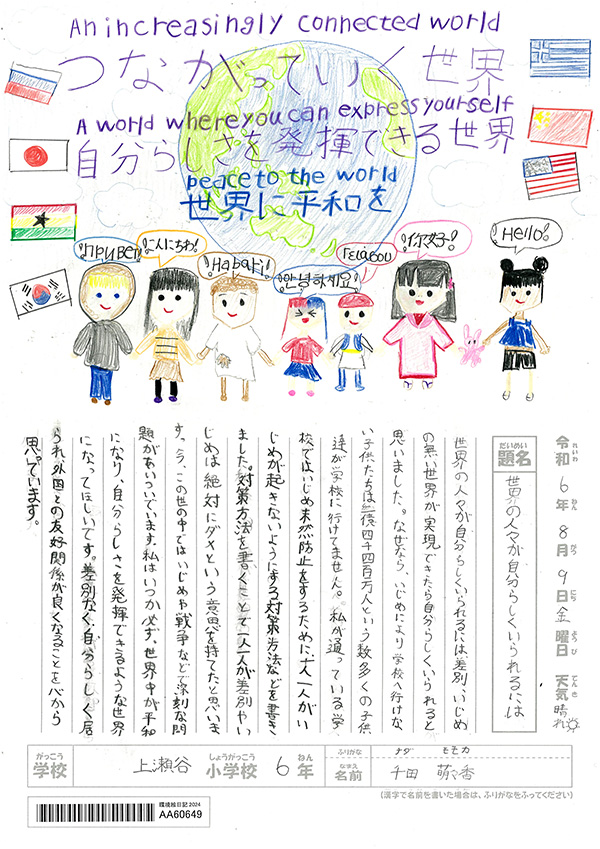 An increasingly connected world
つながっていく世界
A world where you can express yourself
自分らしさを発揮できる世界
peace to the world
世界に平和を
Привет
こんにちわ!
Habari!
안녕하세요
Γειά σου
你好!
Hello!
令和6年8月9日金曜日 天気 晴れ
れいわ ねん がつ にち ようび てんき
だいめい
題名
世界の人々が自分らしくいられるには
世界の人々が自分らしくいられるには、差別、いじめ
の無い世界が実現できたら自分らしくいられると
思いました。なぜなら、いじめにより学校へ行けな
い子供たちは二億四千四百万人という数多くの子供
達が学校に行けてません。私が通っている学
校ではいじめ未然防止をするために、一人一人がい
じめが起きないようにする対策方法などを書き
ました。対策方法を書くことで一人一人が差別やい
じめは絶対にダメという意思を持てたと思いま
す。今、この世の中ではいじめや戦争などで深刻な問
題があいついでいます。私はいつか必ず、世界中が平和
になり、自分らしさを発揮できるような世界
になってほしいです。差別なく、自分らしく居
られ、外国との友好関係が良くなることを心から
思っています。
がっこう しょうがっこう ねん
学校 上瀬谷 小学校 6年
ふりがな チダ モモカ
なまえ
名前 千田 萌々香
(漢字で名前を書いた場合は、ふりがなをふってください)
環境絵日記 2024
AA60649